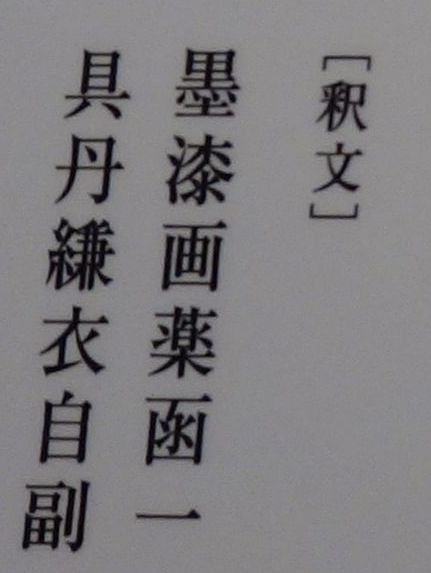 ［釈文］
墨漆画薬函一
具丹縑衣自副